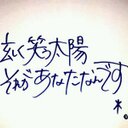 玄く笑う太陽
それがあなたなんです
木